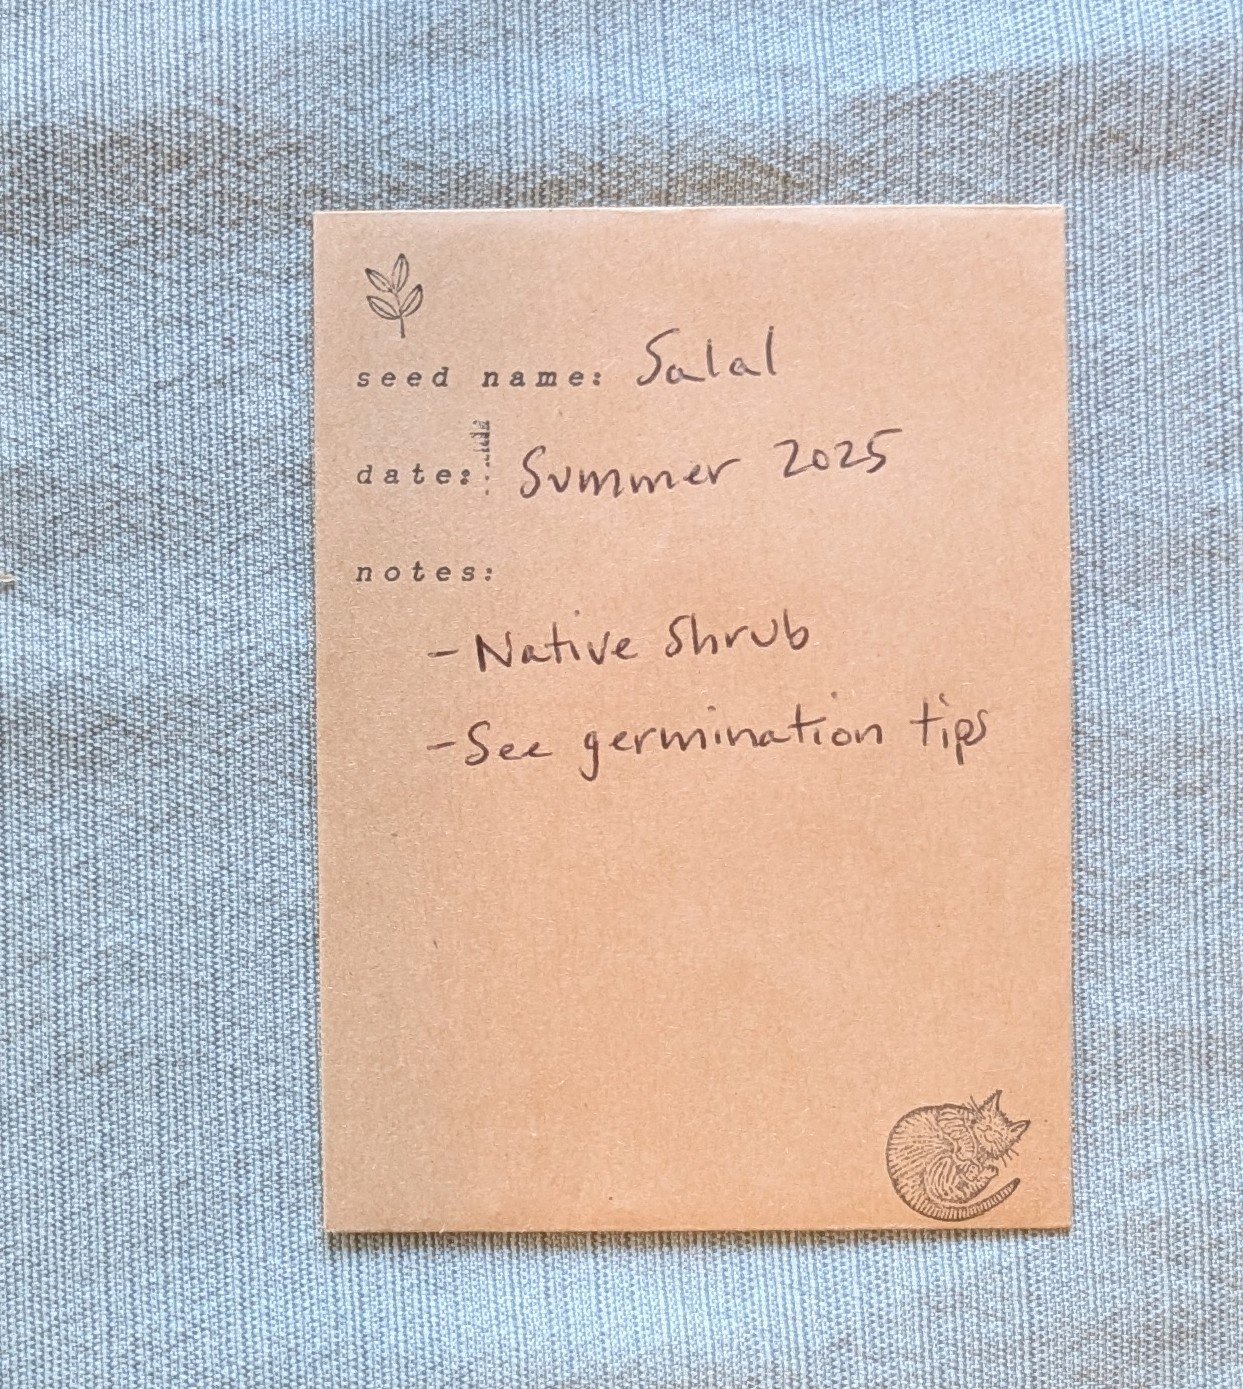 seed name: Salal
date: Summer 2025
notes:
- Native Shrub
- See germination tips